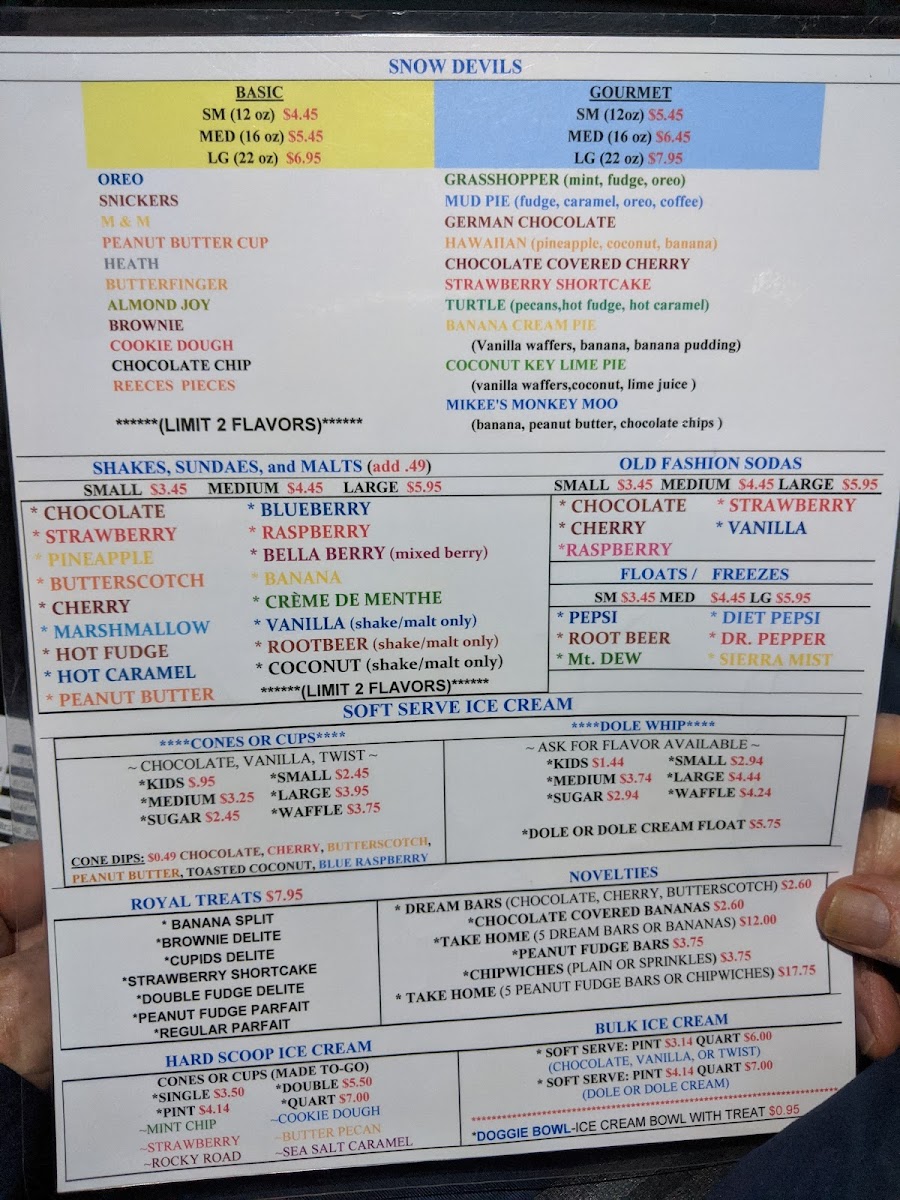 SNOW DEVILS
BASIC
SM (12 oz) $4.45
MED (16 oz) $5.45
LG (22 oz) $6.95
OREO
SNICKERS
M & M
PEANUT BUTTER CUP
HEATH
BUTTERFINGER
ALMOND JOY
BROWNIE
COOKIE DOUGH
CHOCOLATE CHIP
REECES PIECES
******(LIMIT 2 FLAVORS)******
GOURMET
SM (12oz) $5.45
MED (16 oz) $6.45
LG (22 oz) $7.95
GRASSHOPPER (mint, fudge, oreo)
MUD PIE (fudge, caramel, oreo, coffee)
GERMAN CHOCOLATE
HAWAIIAN (pineapple, coconut, banana)
CHOCOLATE COVERED CHERRY
STRAWBERRY SHORTCAKE
TURTLE (pecans,hot fudge, hot caramel)
BANANA CREAM PIE
(Vanilla waffers, banana, banana pudding)
COCONUT KEY LIME PIE
(vanilla waffers,coconut, lime juice )
MIKEE'S MONKEY MOO
(banana, peanut butter, chocolate chips )
SHAKES, SUNDAES, and MALTS (add .49)
SMALL $3.45 MEDIUM $4.45 LARGE $5.95
* CHOCOLATE
* STRAWBERRY
* PINEAPPLE
* BUTTERSCOTCH
* CHERRY
* MARSHMALLOW
* HOT FUDGE
* HOT CARAMEL
* PEANUT BUTTER
* BLUEBERRY
* RASPBERRY
* BELLA BERRY (mixed berry)
* BANANA
* CRÈME DE MENTHE
* VANILLA (shake/malt only)
* ROOTBEER (shake/malt only)
* COCONUT (shake/malt only)
******(LIMIT 2 FLAVORS)******
OLD FASHION SODAS
SMALL $3.45 MEDIUM $4.45 LARGE $5.95
* CHOCOLATE * STRAWBERRY
* CHERRY * VANILLA
*RASPBERRY
FLOATS / FREEZES
SM $3.45 MED $4.45 LG $5.95
* PEPSI * DIET PEPSI
* ROOT BEER * DR. PEPPER
* Mt. DEW * SIERRA MIST
SOFT SERVE ICE CREAM
****CONES OR CUPS****
~ CHOCOLATE, VANILLA, TWIST ~
*KIDS $.95 *SMALL $2.45
*MEDIUM $3.25 *LARGE $3.95
*SUGAR $2.45 *WAFFLE $3.75
CONE DIPS: $0.49 CHOCOLATE, CHERRY, BUTTERSCOTCH,
PEANUT BUTTER, TOASTED COCONUT, BLUE RASPBERRY
****DOLE WHIP****
~ ASK FOR FLAVOR AVAILABLE ~
*KIDS $1.44 *SMALL $2.94
*MEDIUM $3.74 *LARGE $4.44
*SUGAR $2.94 *WAFFLE $4.24
*DOLE OR DOLE CREAM FLOAT $5.75
ROYAL TREATS $7.95
* BANANA SPLIT
*BROWNIE DELITE
*CUPIDS DELITE
*STRAWBERRY SHORTCAKE
*DOUBLE FUDGE DELITE
*PEANUT FUDGE PARFAIT
*REGULAR PARFAIT
NOVELTIES
* DREAM BARS (CHOCOLATE, CHERRY, BUTTERSCOTCH) $2.60
*CHOCOLATE COVERED BANANAS $2.60
*TAKE HOME (5 DREAM BARS OR BANANAS) $12.00
*PEANUT FUDGE BARS $3.75
*CHIPWICHES (PLAIN OR SPRINKLES) $3.75
* TAKE HOME (5 PEANUT FUDGE BARS OR CHIPWICHES) $17.75
HARD SCOOP ICE CREAM
CONES OR CUPS (MADE TO-GO)
*SINGLE $3.50 *DOUBLE $5.50
*PINT $4.14 *QUART $7.00
~MINT CHIP ~COOKIE DOUGH
~STRAWBERRY ~BUTTER PECAN
~ROCKY ROAD ~SEA SALT CARAMEL
BULK ICE CREAM
* SOFT SERVE: PINT $3.14 QUART $6.00
(CHOCOLATE, VANILLA, OR TWIST)
* SOFT SERVE: PINT $4.14 QUART $7.00
(DOLE OR DOLE CREAM)
*DOGGIE BOWL-ICE CREAM BOWL WITH TREAT $0.95